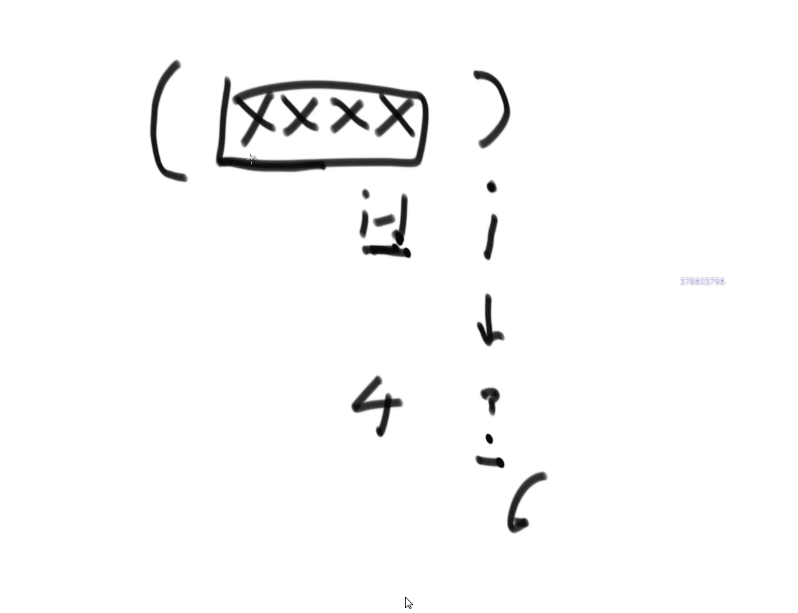 ( XXXX )
i-1 i
4 ?
6
378603796